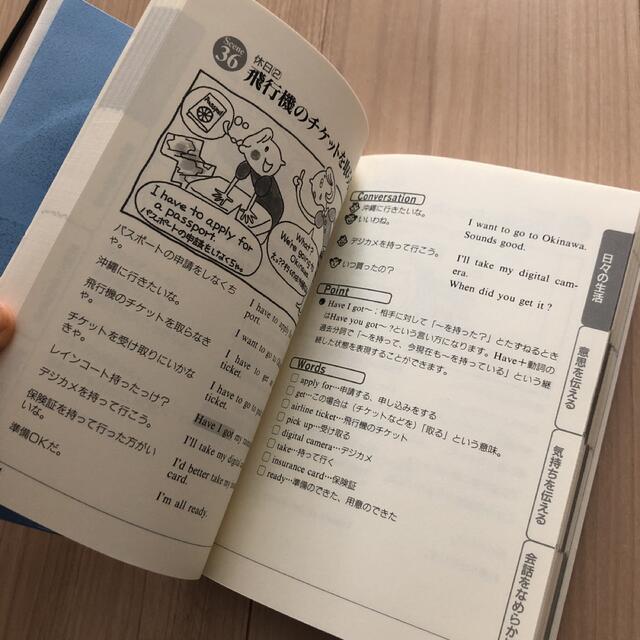 Scene
36
休日②
飛行機のチケットを取
Passport
I have to apply for
a passport.
パスポートの申請をしなくちゃ。
What?
We're going to
Okinawa
パスポートの申請をしなくち
ゃ。
沖縄に行きたいな。
飛行機のチケットを取らなき
ゃ。
チケットを受け取りにいかな
きゃ。
レインコート持ったっけ?
デジカメを持って行こう。
保険証を持って行った方がい
いな。
準備OKだ。
I have to apply
port.
I want to go to
I have to get
ticket.
I have to go to
ticket.
Have I got my
I'll take my digi
I'd better take my
card.
I'm all ready.
Conversation
沖縄に行きたいな。
いいわね。
デジカメを持って行こう。
いつ買ったの?
I want to go to Okinawa.
Sounds good.
I'll take my digital cam-
era.
When did you get it?
Point
● Have I got~:相手に対して「~を持った?」とたずねるとき
はHave you got~?という言い方になります。Have+動詞の
過去分詞で「~を持って、今現在も~を持っている」という継
続した状態を表現することができます。
Words
□ apply for…申請する、申し込みをする
□ get…この場合は(チケットなどを)「取る」という意味。
□ airline ticket…飛行機のチケット
□ pick up…受け取る
□ digital camera…デジカメ
□ take…持って行く
□ insurance card…保険証
□ ready…準備のできた、用意のできた
日々の生活
意思を伝える
気持ちを伝える
会話をなめらか